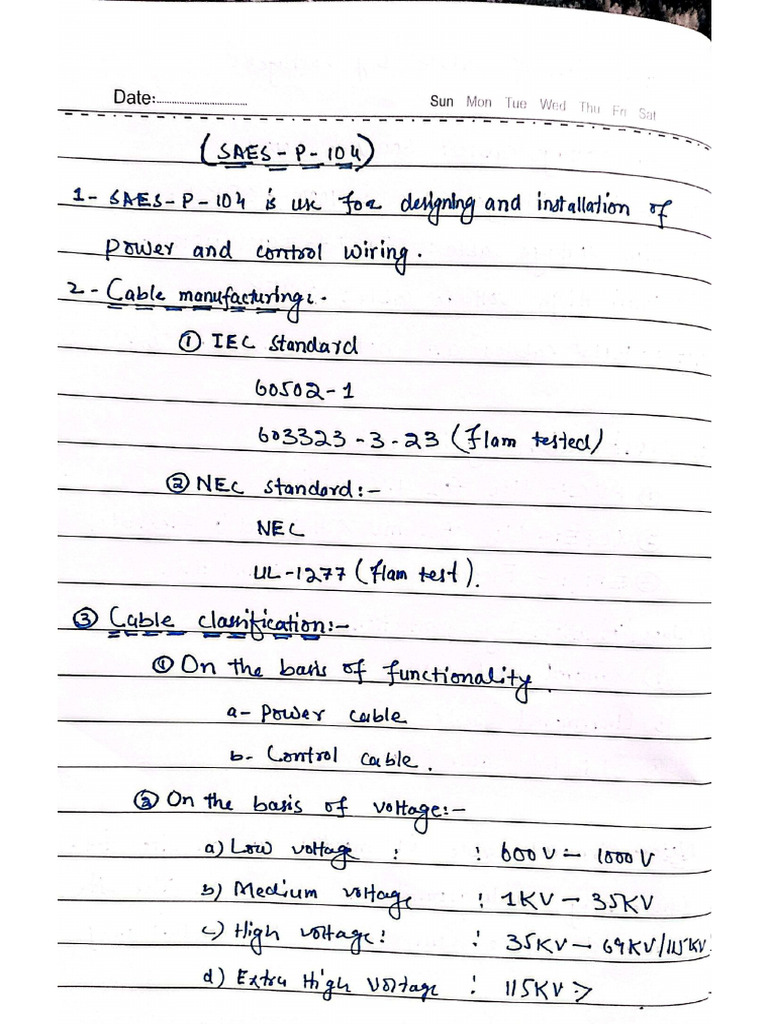 Date:
Sun Mon Tue Wed Thu Fri Sat
(SAES-P-104)
1- SAES-P-104 is use for designing and installation of
power and control wiring.
2- Cable manufacturing:-
① IEC standard
60502-1
603323-3-23 (flam tested)
② NEC standard:-
NEC
UL-1277 (flam test).
③ Cable classification:-
① On the basis of functionality.
a- Power cable
b- Control cable.
② On the basis of voltage:-
a) Low voltage : : 600V - 1000V
b) Medium voltage : 1KV - 35KV
c) High voltage: : 35KV - 69KV/115KV
d) Extra High Voltage : 115KV >